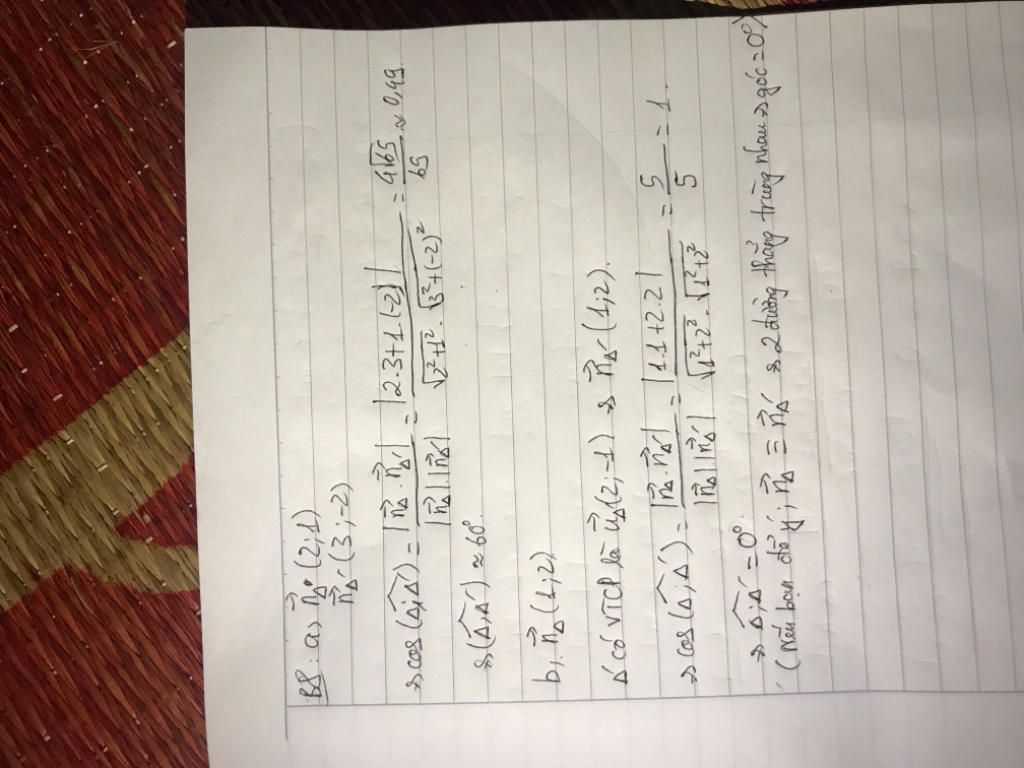 B8: a, n⃗Δ (2;1)
n⃗Δ' (3;-2)
=> cos(Δ;Δ') = |n⃗Δ.n⃗Δ'| / |n⃗Δ|.|n⃗Δ'| = |2.3+1.(-2)| / √2²+1² . √3²+(-2)² = 4√65 / 65 ≈ 0,49.
=> (Δ,Δ') ≈ 60°.
b, n⃗Δ (1;2)
Δ' có VTCP là u⃗Δ'(2;-1) => n⃗Δ' (1;2).
=> cos(Δ;Δ') = |n⃗Δ.n⃗Δ'| / |n⃗Δ|.|n⃗Δ'| = |1.1+2.2| / √1²+2² . √1²+2² = 5 / 5 = 1.
=> Δ;Δ' = 0°.
(nếu bạn để ý; n⃗Δ ≡ n⃗Δ' => 2 đường thẳng trùng nhau => góc = 0°)